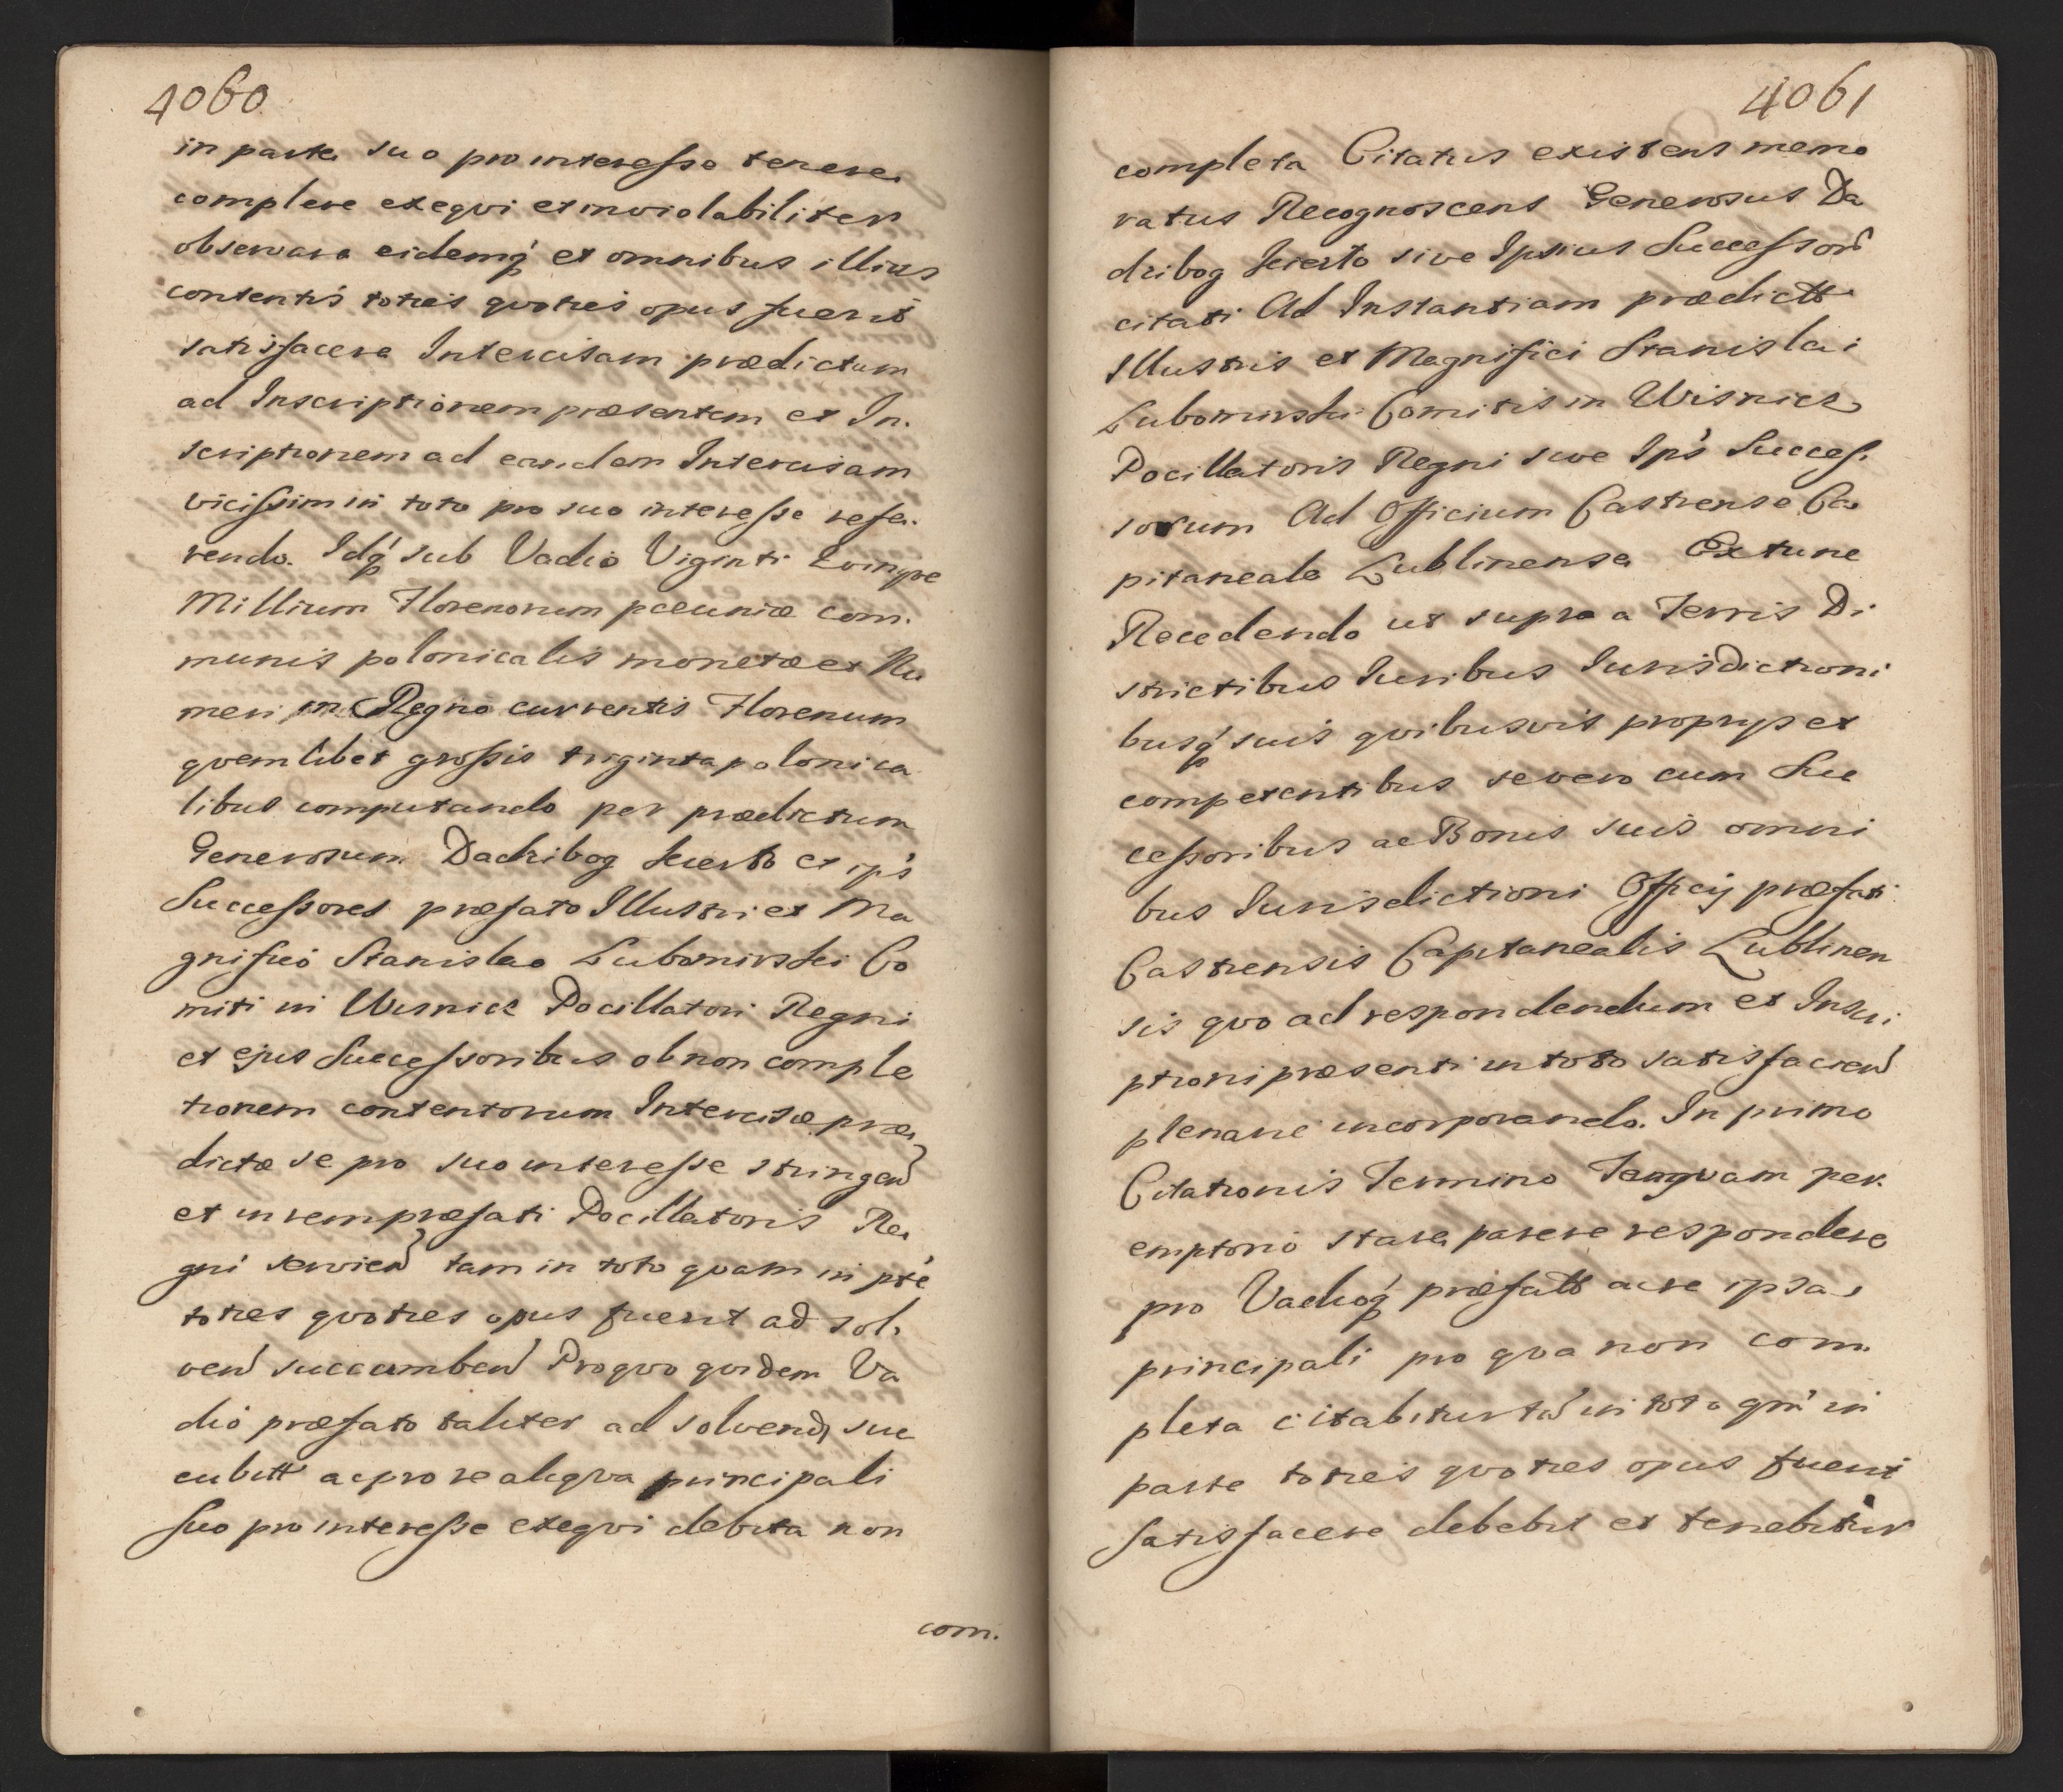 4060
in parte suo pro interesse tenere
complere exeqvi et inviolabiliter
observare eidemq́ et omnibus illius
contentis toties qvoties opus fuerit
satisfacere Intercisam prædictam
ad Inscriptionem præsentem et In-
scriptionem ad eandem Intercisam
vicissim in toto pro suo interesse refe-
rendo. Idq́ sub Vadio Viginti Qvinqve
Millium Florenorum pecuniæ com-
munis polonicalis monetæ et Nu
meri in Regno currentis Florenum
qvemlibet grossis triginta polonica
libus computando per prædictum
Generosum Dadzibog Kierlo et ips
Successores præfato Illustri et Ma
gnifico Stanislao Lubomirski Co
miti in Wisnicz Pocillatori Regni
et ejus Successoribus ob non comple
tionem contentorum Intercisæ præ
dictæ se pro suo interesse stringen
et in rem præfati Pocillatoris Re
gni servien tam in toto qvam in pte
toties qvoties opus fuerit ad sol-
ven succumben Pro qvo qvidem Va
dio præfato taliter ad solvend suc
cubitt ac pro re aliqva principali
suo pro interesse exeqvi debita non
com.
4061
completa Citatus existens memo
ratus Recognoscens Generosus Da
dzibog Kierlo sive Ipsius Successor
citati Ad Instantiam prædictt
Illustris et Magnifici Stanislai
Lubomirski Comitis in Wisnicz
Pocillatoris Regni sive Ips Succes-
sorum Ad Officium Castrense Ca
pitaneale Lublinense Ex tunc
Recedendo ut supra a Terris Di
strictibus Iuribus Iurisdictioni
busq́ suis qvibusvis proprijs et
competentibus se vero cum Suc
cessoribus ac Bonis suis omni
bus Iurisdictioni Officij præfati
Castrensis Capitanealis Lublinen
sis qvo ad respondendum et Inscri
ptioni præsenti in toto satisfacien
plenarie incorporando. In primo
Citationis Termino Tanqvam per-
emptorio stare parere respondere
pro Vadioq́ præfatt ac re ipsa
principali pro qva non com-
pleta citabitur tam in toto qm in
parte toties qvoties opus fuerit
satisfacere debebit et tenebitur